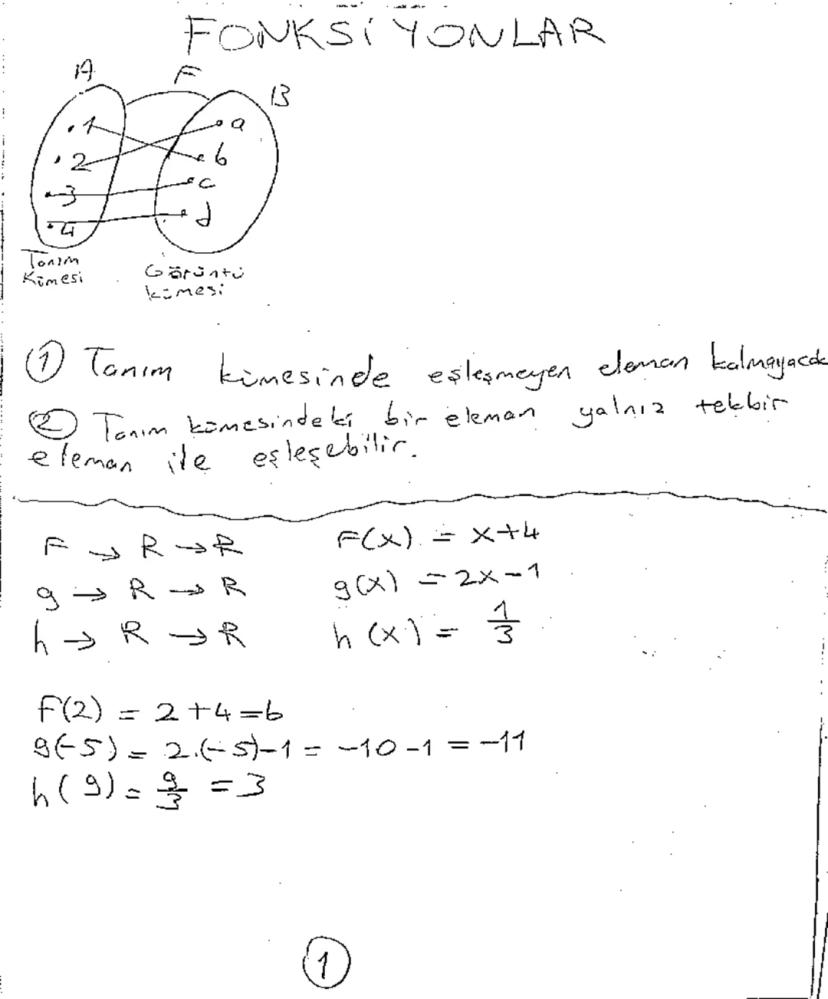 FONKSİYONLAR
A F B
.1 .a
.2 .b
.3 .c
.4 .d
Tanım Kümesi
Görüntü kümesi
① Tanım kümesinde eşleşmeyen eleman kalmayacak
② Tanım kümesindeki bir eleman yalnız tekbir
eleman ile eşleşebilir.
F → R → R F(x) = x+4
g → R → R g(x) = 2x-1
h → R → R h(x) = 1/3
F(2) = 2+4=6
g(-5) = 2.(-5)-1 = -10-1 = -11
h(9) = 9/3 = 3
①